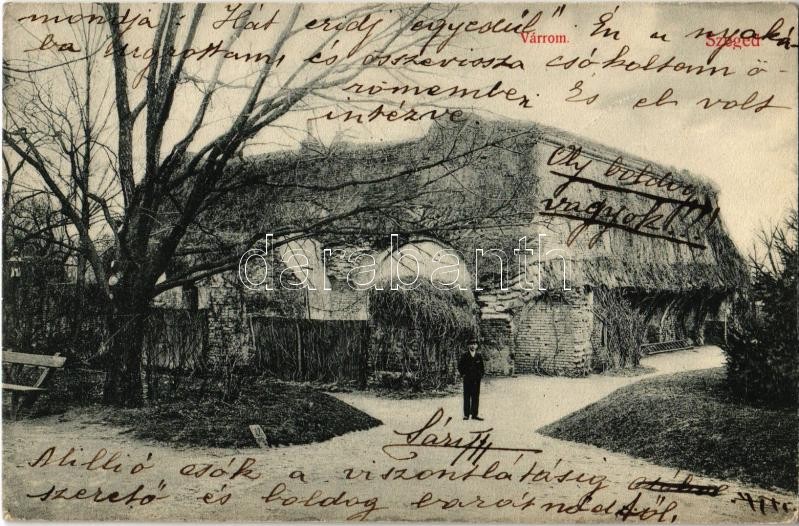 mondja: "Hát eridj egyedül" Én a nyaká-
ba ugrottam, és összevissza csókoltam ö-
römember. És el volt
intézve
Várrom.
Szeged
Oly boldog
vagyok!!!
darabanth
Sári
Millió csók a viszontlátásig
szerető és boldog barátnődtől.